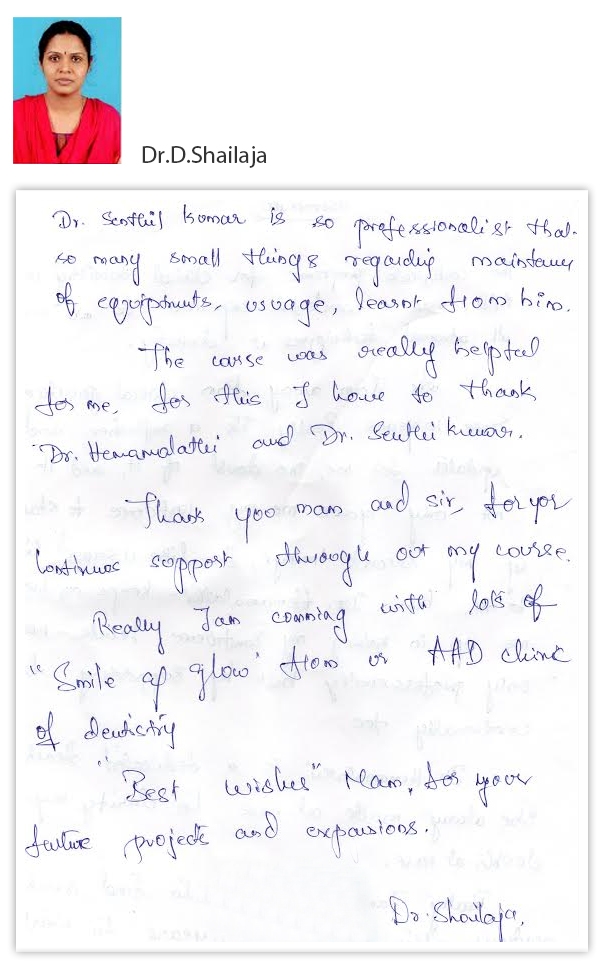 Dr.D.Shailaja
Dr. Senthil Kumar is so professionalist that
so many small things regarding maintanes
of equiptments, usuage, learnt from him.
The course was really helpful
for me, for this I have to thank
Dr. Hemamalathi and Dr. Senthil Kumar.
Thank you mam and sir, for yor
Continues support, through out my course.
Really Iam comming with lots of
"Smile glow" from AAD clinic
of dentistry
"Best wishes" Mam, for your
future projects and expansions.
Dr. Shailaja,